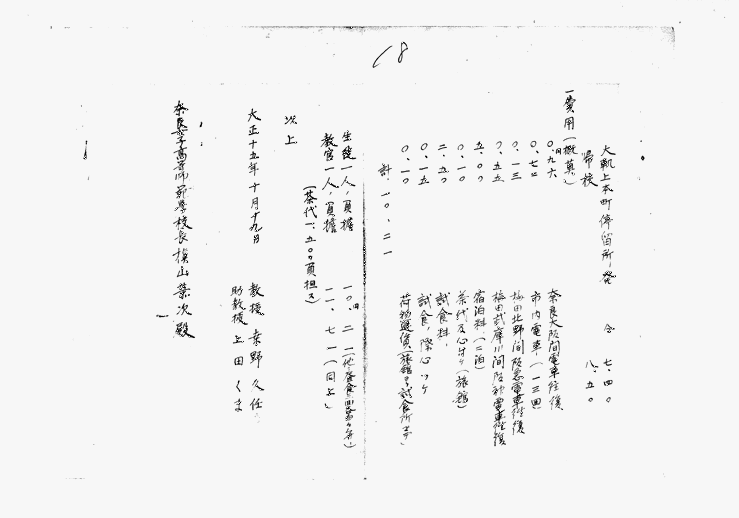 18
大軌上本町停留所発 仝 七.四〇
帰校 八.五〇
一費用(概算)
〇.円九六 奈良大阪間電車往復
〇.七二 市内電車(一三回)
〇.一三 梅田北野間阪急電車往復
〇.五五 梅田武庫川間阪神電車往復
五.〇〇 宿泊料(二泊)
〇.一〇 茶代及心付ケ(旅館)
二.五〇 試食料
〇.一五 試食ノ際心ツケ
〇.一〇 荷物運賃(旅館ヨリ試食所マデ)
計.一〇.二一
生徒一人ノ負擔 一〇.円二一(他昼食
教官一人ノ負擔 一一.七一(同上)
(茶代一.五〇〇負担ス)
以上
大正十五年十月十九日
教授 桒野久任
助教授 上田くま
奈良女子高等師範學校長槙山榮次殿